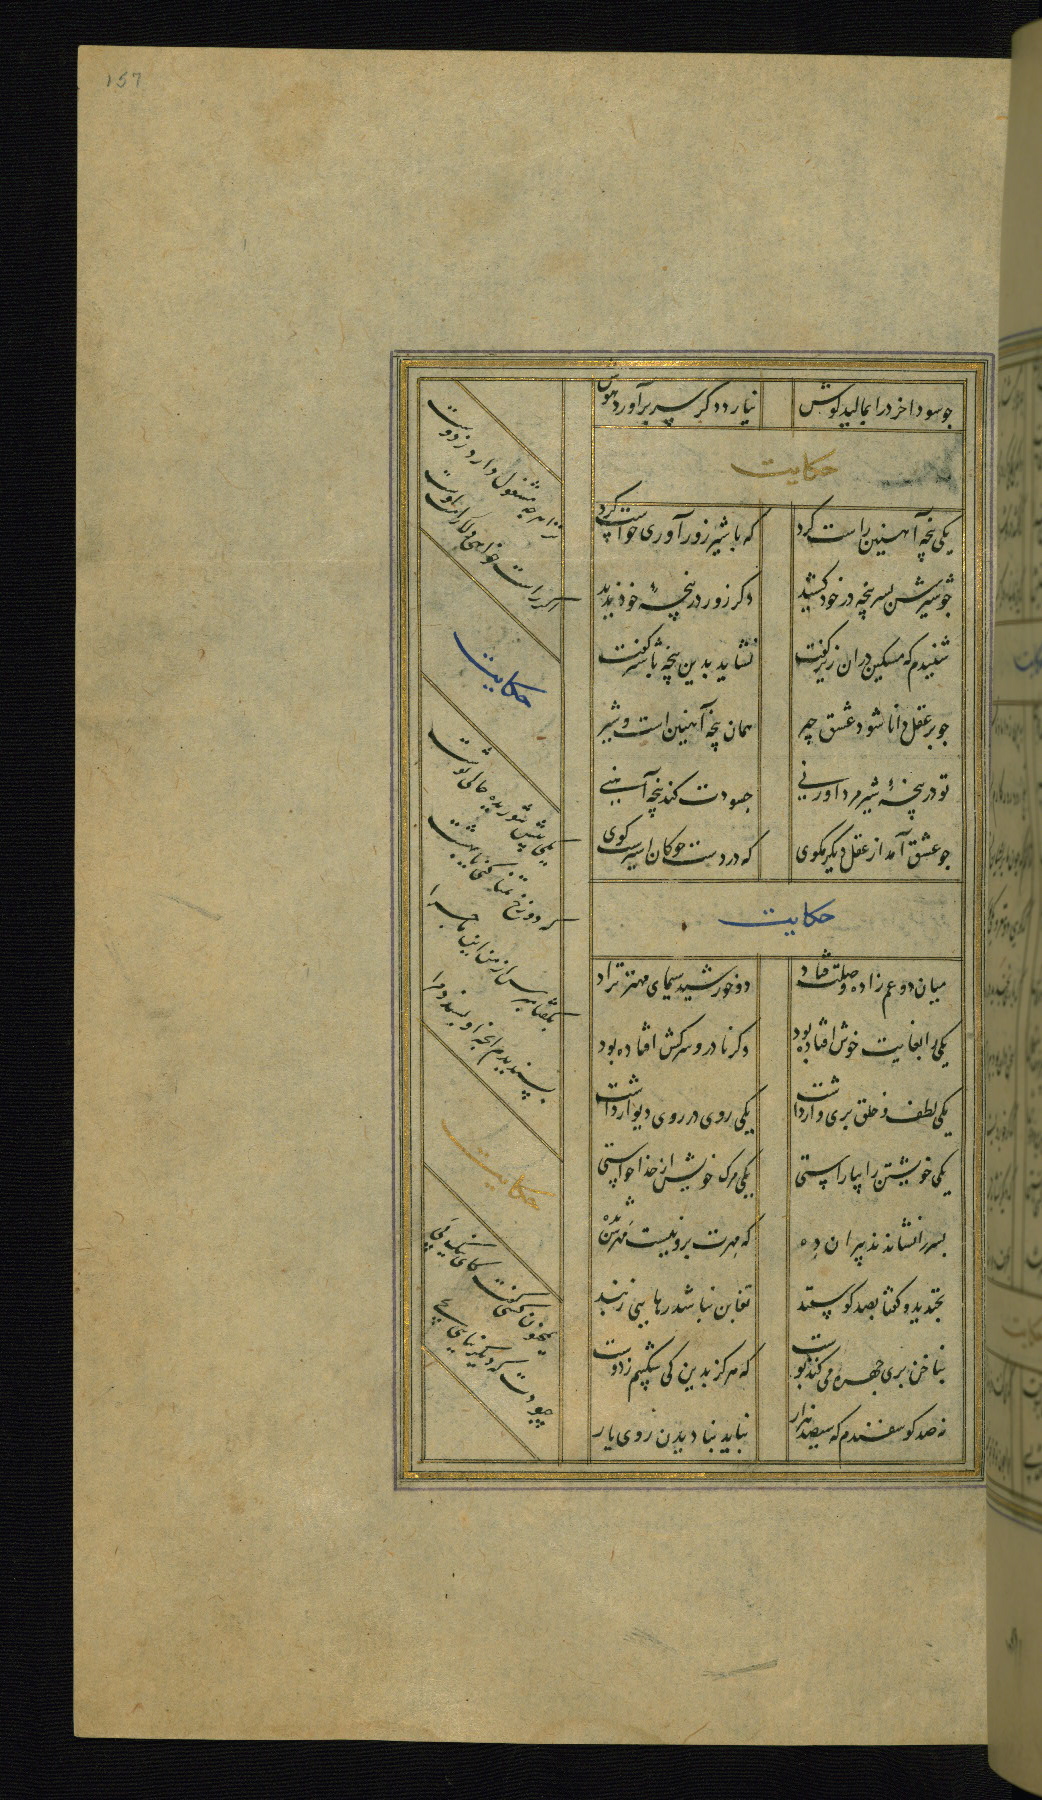 157
چو سودا خرد را بمالید گوش
نیارد دگر سر برآورد هوش
حکایت
یکی پنجهٔ آهنین راست کرد
که با شیر زورآوری خواست کرد
چو شیرش بسرپنجه در خود کشید
دگر زور در پنجهٔ خود ندید
شنیدم که مسکین در ان زیر گفت
نشاید بدین پنجه با شیر گفت
چو بر عقل دانا شود عشق چیر
همان پنجه آهنین است و شیر
تو در پنجهٔ شیر مرد اورنی
چه سودت کند پنجه آهنی
چو عشق آمد از عقل دیگر مگوی
که در دست چوکان اسیرست گوی
حکایت
میان دو عم زاده وصلت فتاد
دو خورشید سیمای مهتر نژاد
یکی را بغایت خوش افتاده بود
دگر نادر و سرکش افتاده بود
یکی لطف و خلق پری وار داشت
یکی روی در روی دیوار داشت
یکی خویشتن را بیاراستی
یکی مرک خویش از خدا خواستی
پسر را نشاندند پیران ده
که مهرت برو نیست مهرش بده
بخندید و گفتا بصد گوسپند
تغابن نباشد رهایی ز بند
بناخن پری چهره می کند پوست
که هرگز بدین کی شکیبم ز دوست
نه صد گوسفندم که سیصد هزار
نباید بنادیدن روی یار
ترا هر چه مشغول دارد ز دوست
اگر راست خواهی دلارامت اوست
حکایت
یکی پیش شوریده حالی نوشت
که دوزخ تمنا کنی یا بهشت
بگفتا مپرس از من این ماجرا
پسندیدم آنچه او پسندد مرا
حکایت
بمجنون کسی گفت کای نیک پی
چه بودت که دیگر نیایی بحی